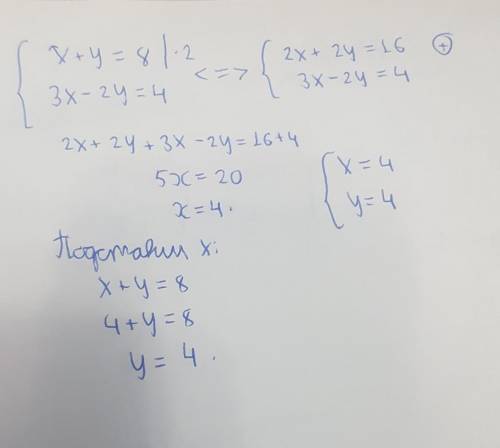 x+y=8 |·2 <=> 2x+2y=16 ⊕
3x-2y=4 3x-2y=4
2x+2y+3x-2y=16+4
5x=20
x=4.
x=4
y=4
Подставим x:
x+y=8
4+y=8
y=4.